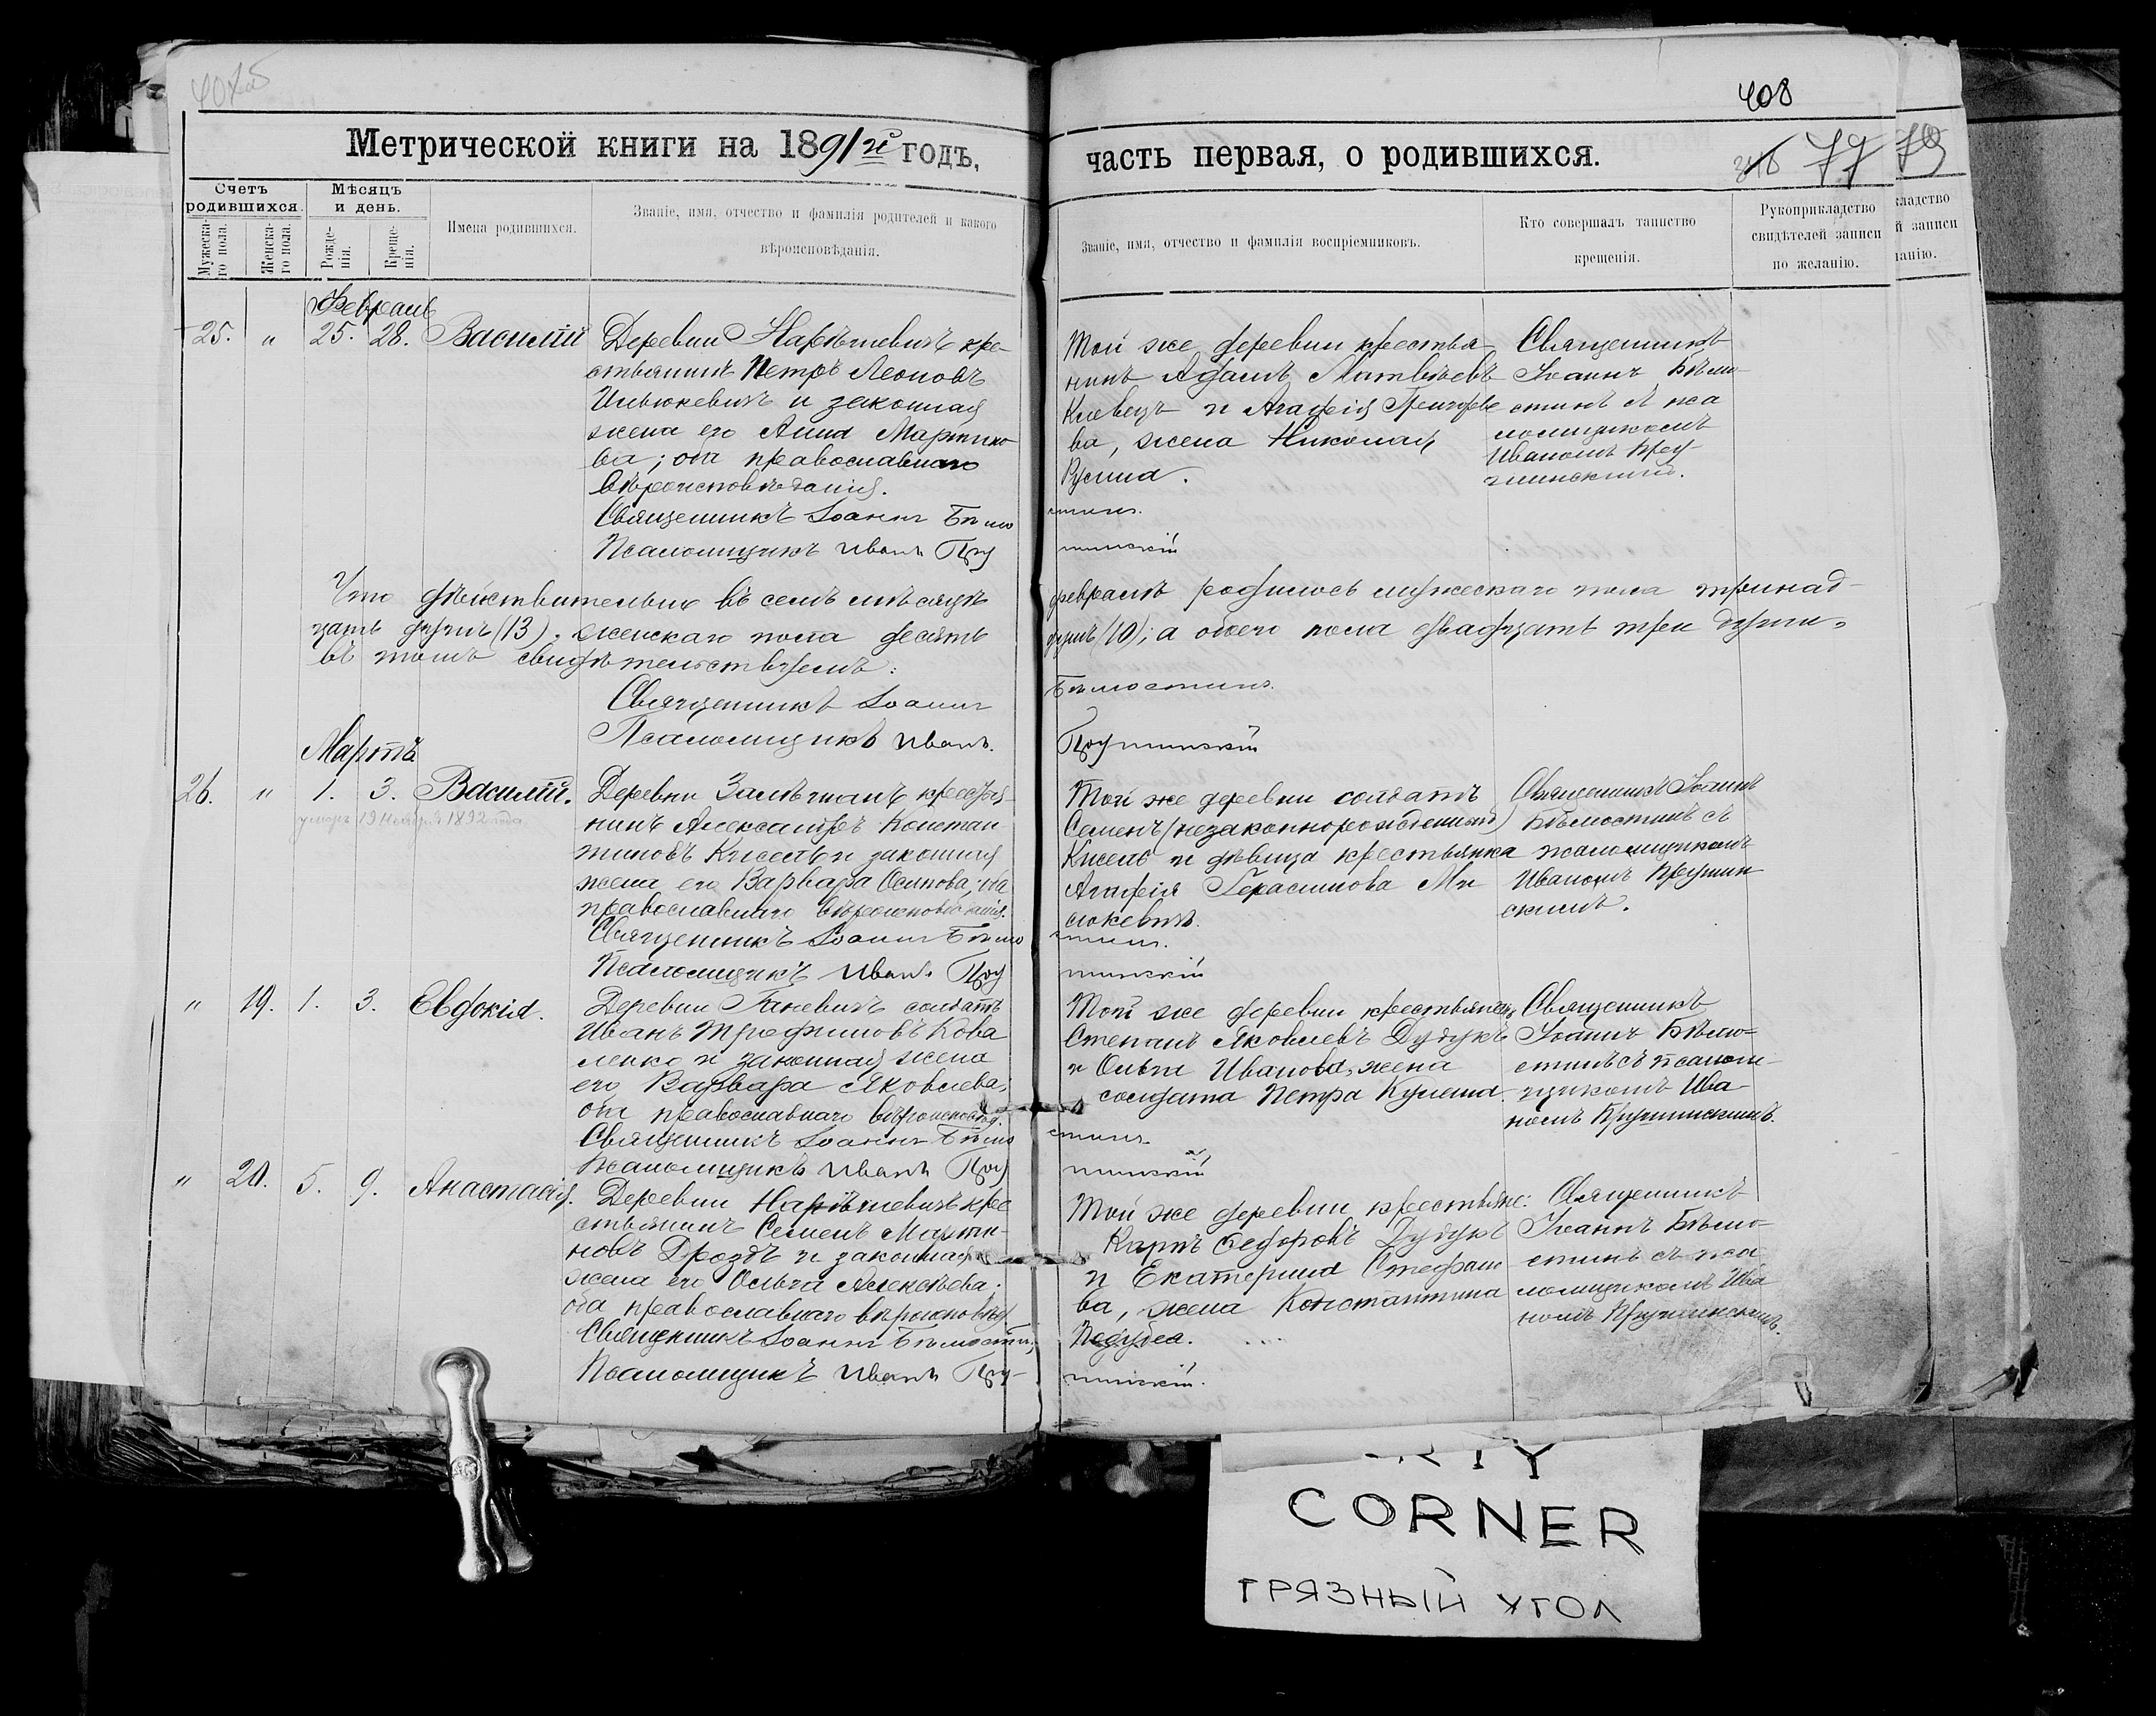 408
Метрической книги на 1891й годъ,
часть первая, о родившихся.
77
79
Счетъ родившихся.
Мѣсяцъ и день.
Мужеска-го пола.
Женска-го пола.
Рожде-нія.
Креще-нія.
Имена родившихся.
Званіе, имя, отчество и фамилія родителей и какого
вѣроисповѣданія.
Званіе, имя, отчество и фамилія воспріемниковъ.
Кто совершалъ таинство
крещенія.
Рукоприкладство
свидѣтелей записи
по желанію.
кладство
й записи
ланію.
Февраль
25. " 25. 28. Василій
Деревни кре-
стьянинъ Петръ Леоновъ
Ильюкевичъ и законная
жена его Анна Мартино
ва; оба православнаго
вѣроисповѣданія.
Священникъ Іоаннъ Бѣло
Псаломщикъ Иванъ Пру
Той же деревни крестья-
нинъ Адамъ Матвѣевъ
и Агафія Григорье
ва, жена Николая
стинъ.
шинскій
Священникъ
Іоаннъ Бѣло-
стинъ съ пса
ломщикомъ
Иваномъ Пру-
шинскимъ.
Что дѣйствительно въ семъ мѣсяцѣ
февралѣ родилось мужескаго пола тринад-
цать душъ (13), женскаго пола десять
душъ (10); а обоего пола двадцать три души,
въ томъ свидѣтельствуемъ:
Священникъ Іоаннъ
Бѣлостинъ.
Псаломщикъ Иванъ
Прушинскій
Мартъ
26. " 1. 3. Василій.
умеръ 19 Ноября 1892 года
Деревни крестья-
нинъ Александръ Констан
тиновъ Кисель и законная
жена его Варвара Осипова; оба
православнаго вѣроисповѣданія.
Священникъ Іоаннъ Бѣло
Псаломщикъ Иванъ Пру
Той же деревни солдатъ
Семенъ (незаконнорожденный)
Кисель и дѣвица крестьянка
Агафія Герасимова Ми
сюкевичъ.
стинъ.
шинскій
Священникъ Іоаннъ
Бѣлостинъ съ
псаломщикомъ
Иваномъ Прушин
скимъ.
" 19. 1. 3. Евдокія.
Деревни солдатъ
Иванъ Трофимовъ Кова
ленко и законная жена
его Варвара Яковлева;
оба православнаго вѣроисповѣд.
Священникъ Іоаннъ Бѣло
Псаломщикъ Иванъ Пру
Той же деревни крестьянинъ
Степанъ Яковлевъ Дудукъ
и Ольга Иванова, жена
солдата Петра Кулеша.
стинъ.
шинскій
Священникъ
Іоаннъ Бѣло-
стинъ съ псалом-
щикомъ Ива
номъ Прушинскимъ.
" 20. 5. 9. Анастасія.
Деревни крес
стьянинъ Семенъ Марти-
новъ Дроздъ и законная
жена его Ольга Алексѣева;
оба православнаго вѣроисповѣд
Священникъ Іоаннъ Бѣлостин
Псаломщикъ Иванъ Пру-
Той же деревни крестьяне:
Карпъ Ѳедоровъ Дудукъ
и Екатерина Стефано
ва, жена Константина
шинскій.
Священникъ
Іоаннъ Бѣло-
стинъ съ пса
ломщикомъ Ива
номъ Прушинскимъ.
CORNER
ГРЯЗНЫЙ УГОЛ